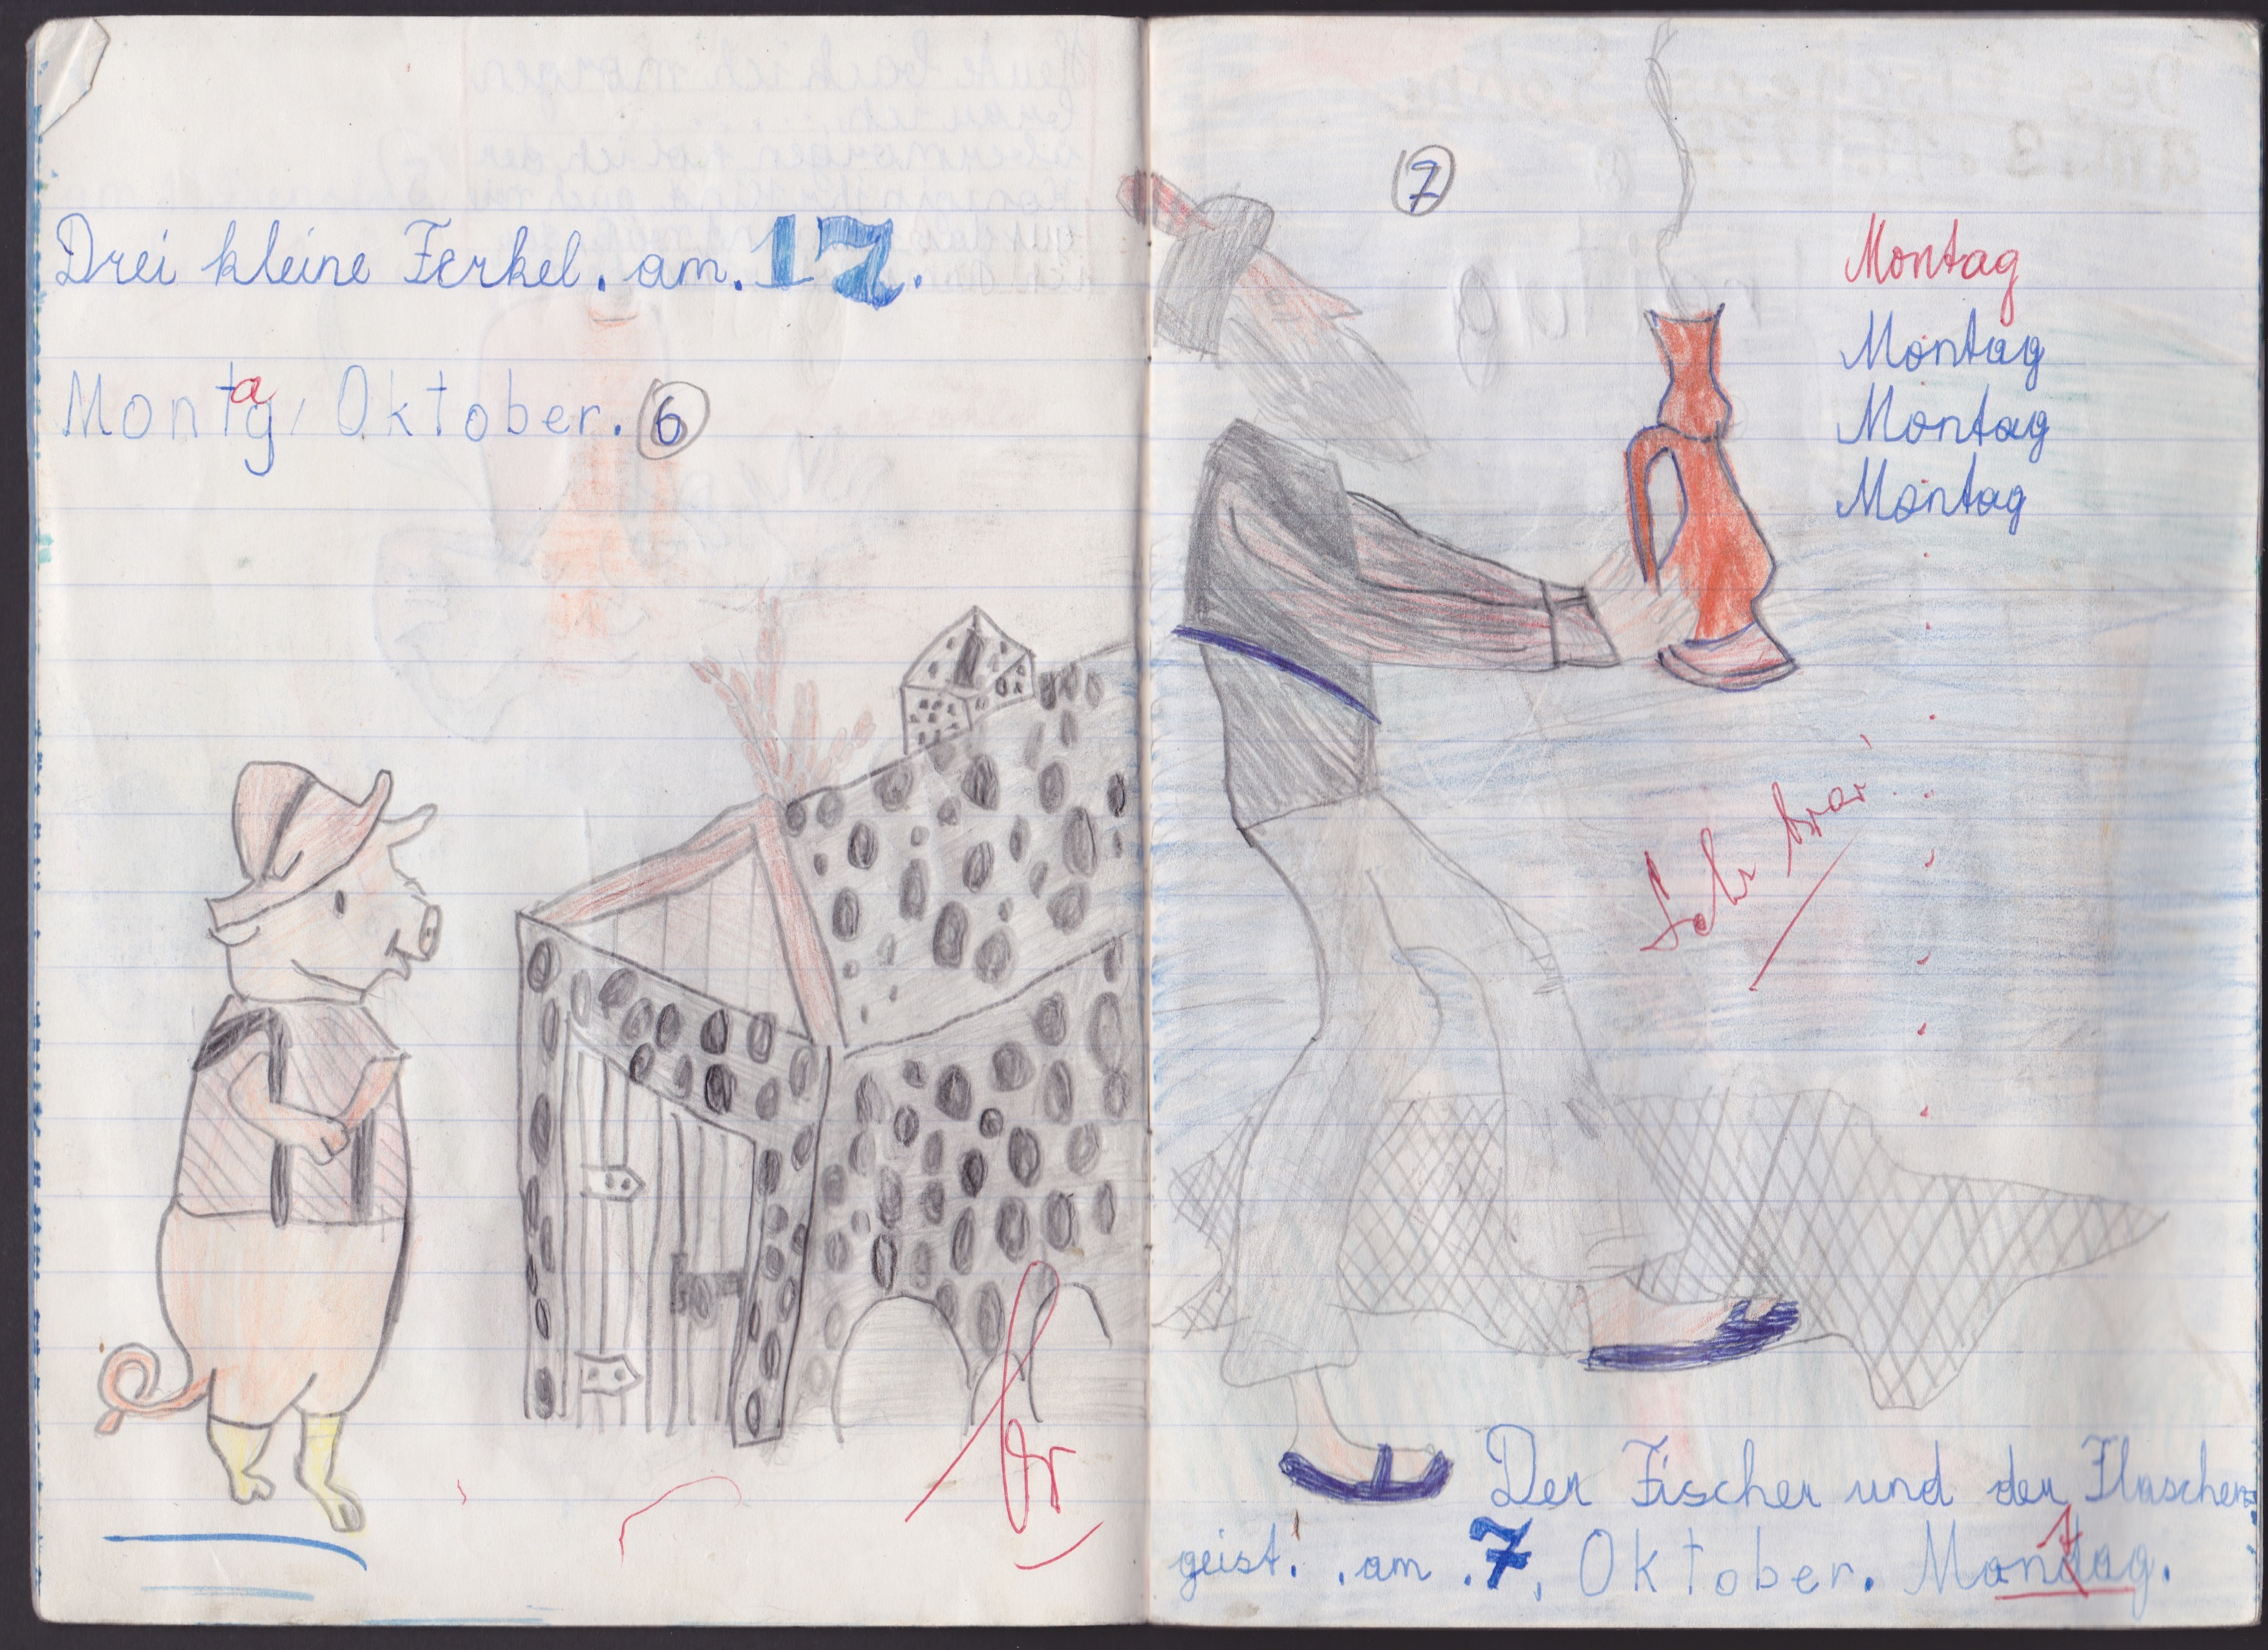 Drei kleine Ferkel. am. 17.
Montag, Oktober. 6
br
7
Montag
Montag
Montag
Montag
Sehr brav!
Der Fischer und der Flaschen=
geist. . am . 7, Oktober. Montag.